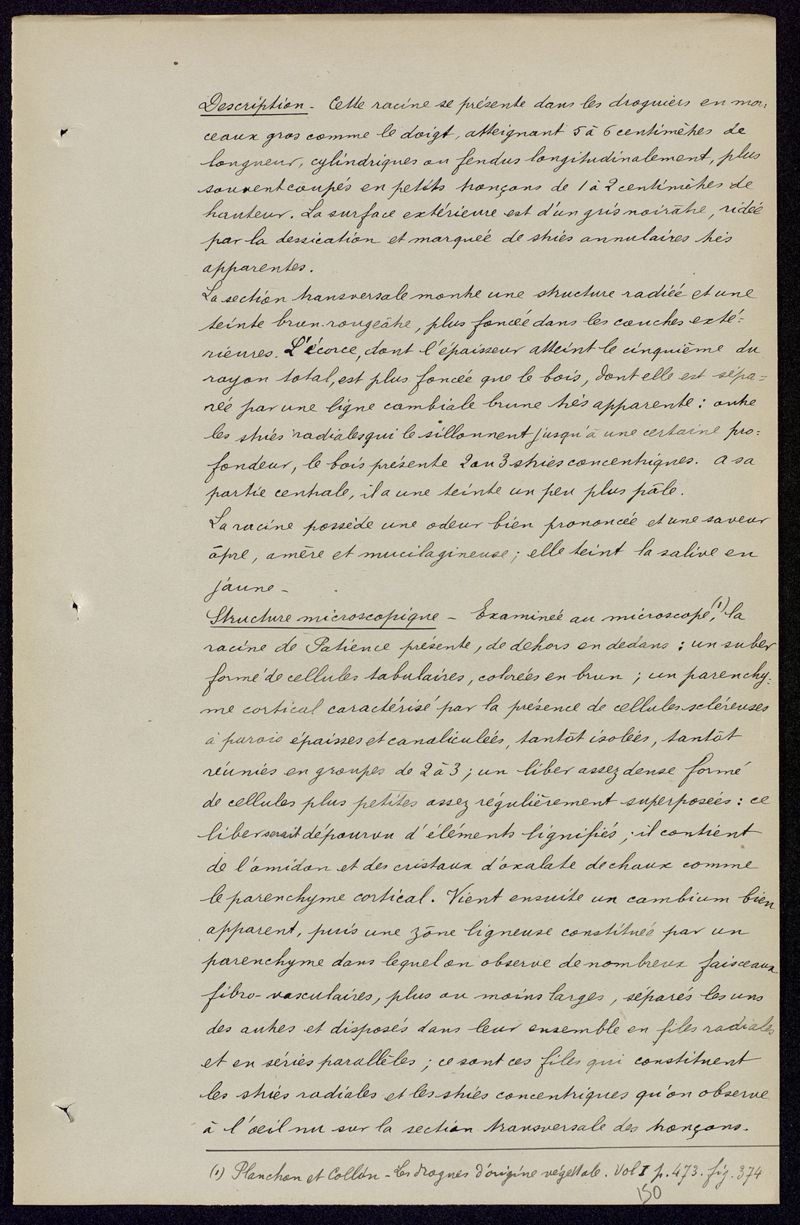 Description - Cette racine se présente dans les droguiers en mor=
ceaux gros comme le doigt, atteignant 5 à 6 centimètres de
longueur, cylindriques ou fendus longitudinalement, plus
souvent coupés en petits tronçons de 1 à 2 centimètres de
hauteur. La surface extérieure est d'un gris noirâtre, ridée
par la dessication et marquée de stries annulaires très
apparentes.
La section transversale montre une structure radiée et une
teinte brun-rougeâtre, plus foncée dans les couches exté=
rieures. L'écorce, dont l'épaisseur atteint le cinquième du
rayon total, est plus foncée que le bois, dont elle est sépa=
rée par une ligne cambiale brune très apparente : outre
les stries radiales qui le sillonnent jusqu'à une certaine pro=
fondeur, le bois présente 2 ou 3 stries concentriques. A sa
partie centrale, il a une teinte un peu plus pâle.
La racine possède une odeur bien prononcée et une saveur
âpre, amère et mucilagineuse ; elle teint la salive en
jaune -
Structure microscopique - Examinée au microscope,(1) la
racine de Patience présente, de dehors en dedans : un suber
formé de cellules tabulaires, colorées en brun ; un parenchy=
me cortical caractérisé par la présence de cellules scléreuses
à parois épaisses et canaliculées, tantôt isolées, tantôt
réunies en groupes de 2 à 3 ; un liber assez dense formé
de cellules plus petites assez régulièrement superposées : ce
liber serait dépourvu d'éléments lignifiés ; il contient
de l'amidon et des cristaux d'oxalate de chaux comme
le parenchyme cortical. Vient ensuite un cambium bien
apparent, puis une zône ligneuse constituée par un
parenchyme dans lequel on observe de nombreux faisceaux
fibro-vasculaires, plus ou moins larges, séparés les uns
des autres et disposés dans leur ensemble en files radiales
et en séries parallèles ; ce sont ces files qui constituent
les stries radiales et les stries concentriques qu'on observe
à l'oeil nu sur la section transversale des tronçons.
(1) Planchon et Collin - Les drogues d'origine végétale. Vol I p. 473. fig. 374
150